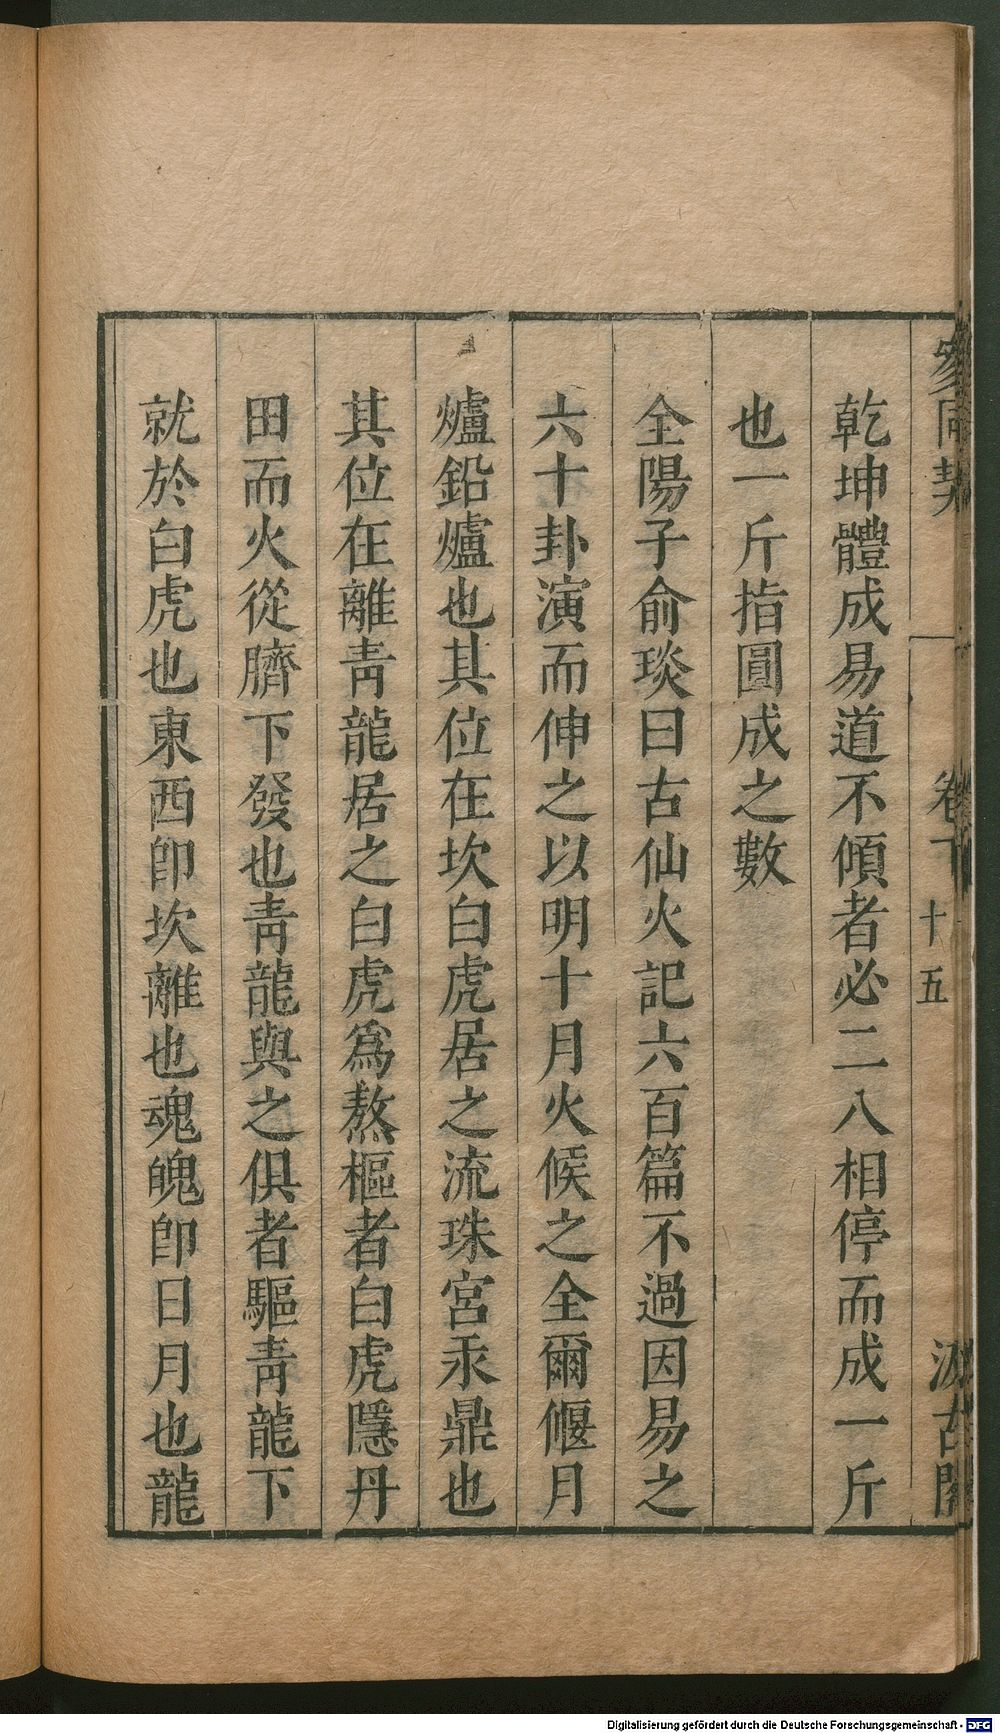 參同契 卷下 十五 汲古閣
乾坤體成易道不傾者必二八相停而成一斤
也一斤指圓成之數
全陽子俞琰曰古仙火記六百篇不過因易之
六十卦演而伸之以明十月火候之全爾偃月
爐鉛爐也其位在坎白虎居之流珠宮汞鼎也
其位在離靑龍居之白虎爲熬樞者白虎隱丹
田而火從臍下發也靑龍與之俱者驅靑龍下
就於白虎也東西卽坎離也魂魄卽日月也龍
Digitalisierung gefördert durch die Deutsche Forschungsgemeinschaft - DFG